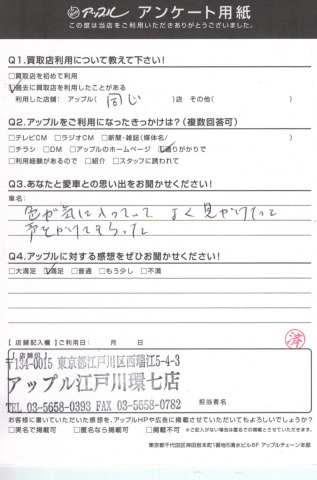 アップル アンケート用紙
この度は当店をご利用いただきありがとうございました。
Q1.買取店利用について教えて下さい!
□買取店を初めて利用
□過去に買取店を利用したことがある
利用した店舗: アップル( 同じ )店 その他( )
Q2.アップルをご利用になったきっかけは?(複数回答可)
□テレビCM □ラジオCM □新聞・雑誌(媒体名/ )
□チラシ □DM □アップルのホームページ □通りがかりで
□利用経験があるので □紹介 □スタッフに誘われて
Q3.あなたと愛車との思い出をお聞かせください!
車名:
色が気に入っていて よく見かけたと
声をかけてもらった
Q4.アップルに対する感想をぜひお聞かせください!
□大満足 □満足 □普通 □もう少し □不満
【店舗記入欄】ご利用日: 月 日
済
【店舗印】
〒134-0015 東京都江戸川区西瑞江5-4-3
アップル江戸川環七店
TEL 03-5658-0393 FAX 03-5658-0782
担当者名
お客様に書いていただいた感想を、アップルHPや広告に掲載させていただいてもよろしいでしょうか?
□実名で掲載可 □匿名なら掲載可 □掲載不可 ※ご記入がない場合は匿名での掲載とさせていただきます。
東京都千代田区神田岩本町1番地5清水ビル6F アップルチェーン本部